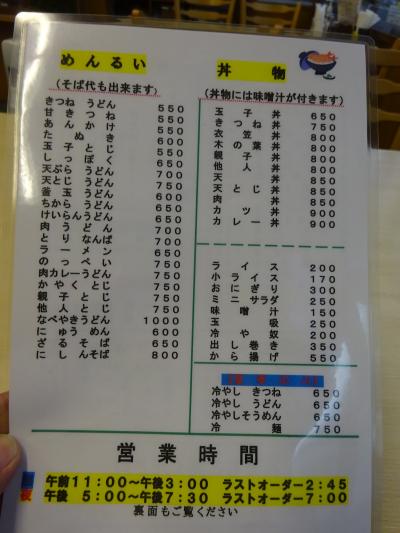 めんるい
(そば代も出来ます)
きつねうどん 550
甘きつね 550
あんかけ 550
たぬき 600
玉子とじ 550
しっぽく 650
天ぷらうどん 700
天とじうどん 750
釜玉うどん 650
ちからうどん 650
けいらんうどん 650
肉うどん 700
とりなんば 700
ラーメン 650
のっぺい 750
肉カレーうどん 750
かやくとじ 750
親子とじ 750
他人とじ 750
なべやきうどん 1000
にゅうめん 600
ざるそば 650
にしんそば 800
丼物
(丼物には味噌汁が付きます)
玉子丼 650
きつね丼 750
衣笠丼 800
木の葉丼 800
親子丼 800
他人丼 800
天丼 850
天とじ丼 850
肉丼 850
カツ丼 900
カレー丼 900
ライス 200
小ライス 170
おにぎり 300
ミニサラダ 250
味噌汁 150
玉吸 250
冷や奴 200
出し巻き 350
から揚げ 550
冷やしきつね 650
冷やしうどん 650
冷やしそうめん 650
冷麺 750
営業時間
午前11:00～午後3:00 ラストオーダー2:45
夜 午後 5:00～午後7:30 ラストオーダー7:00
裏面もご覧ください